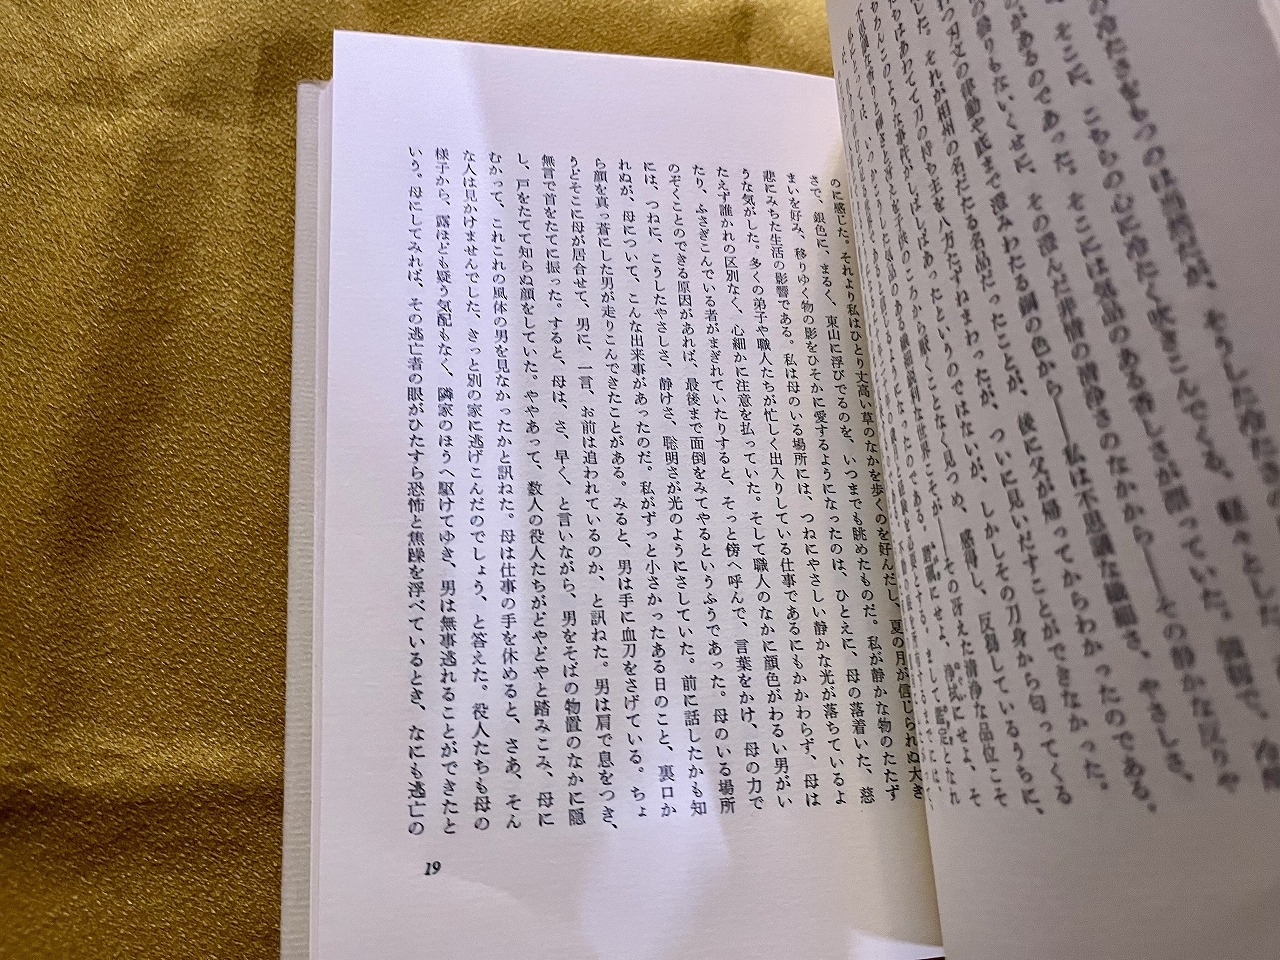 の冷たさをもつのは当然だが、そうした冷たさの
、そこに、こちらの心に冷たく吹きこんでくる、軽々とした、
のがあるのであった。そこには気品のある香しさが漂っていた。強靱で、冷酷
の曇りもないくせに、その澄んだ非情の清浄さのなかから――その静かな反りや
わつ刃文の律動や底まで澄みわたる鋼の色から――私は不思議な繊細さ、やさしさ、
した。それが相州の名だたる名品だったことが、後に父が帰ってからわかったのである。
ちはあわてて刀の持ち主を八方たずねまわったが、ついに見いだすことができなかった。
ちろんこのような事件がしばしばあったというのではないが、しかしその刀身から匂ってくる
不思議な香りと静けさと冴えとを子供のころから厭くことなく見つめ、感得し、反芻しているうちに、
私にとっては、いつかこうした気品のある繊細鋭利な世界こそが――その冴えた清浄な品位こそ
のに感じた。それより私はひとり丈高い草のなかを歩くのを好んだし、夏の月が信じられぬ大き
さで、銀色に、まるく、東山に浮びでるのを、いつまでも眺めたものだ。私が静かな物のたたず
まいを好み、移りゆく物の影をひそかに愛するようになったのは、ひとえに、母の落着いた、慈
悲にみちた生活の影響である。私は母のいる場所には、つねにやさしい静かな光が落ちているよ
うな気がした。多くの弟子や職人たちが忙しく出入りしている仕事であるにもかかわらず、母は
たえず誰かれの区別なく、心細かに注意を払っていた。そして職人のなかに顔色がわるい男がい
たり、ふさぎこんでいる者がまぎれていたりすると、そっと傍へ呼んで、言葉をかけ、母の力で
のぞくことのできる原因があれば、最後まで面倒をみてやるというふうであった。母のいる場所
には、つねに、こうしたやさしさ、静けさ、聡明さが光のようにさしていた。前に話したかも知
れぬが、母について、こんな出来事があったのだ。私がずっと小さかったある日のこと、裏口か
ら顔を真っ蒼にした男が走りこんできたことがある。みると、男は手に血刀をさげている。ちょ
うどそこに母が居合せて、男に、一言、お前は追われているのか、と訊ねた。男は肩で息をつき、
無言で首をたてに振った。すると、母は、さ、早く、と言いながら、男をそばの物置のなかに隠
し、戸をたてて知らぬ顔をしていた。ややあって、数人の役人たちがどやどやと踏みこみ、母に
むかって、これこれの風体の男を見なかったかと訊ねた。母は仕事の手を休めると、さあ、そん
な人は見かけませんでした、きっと別の家に逃げこんだのでしょう、と答えた。役人たちも母の
様子から、露ほども疑う気配もなく、隣家のほうへ駆けてゆき、男は無事逃れることができたと
いう。母にしてみれば、その逃亡者の眼がひたすら恐怖と焦躁を浮べているとき、なにも逃亡の
19